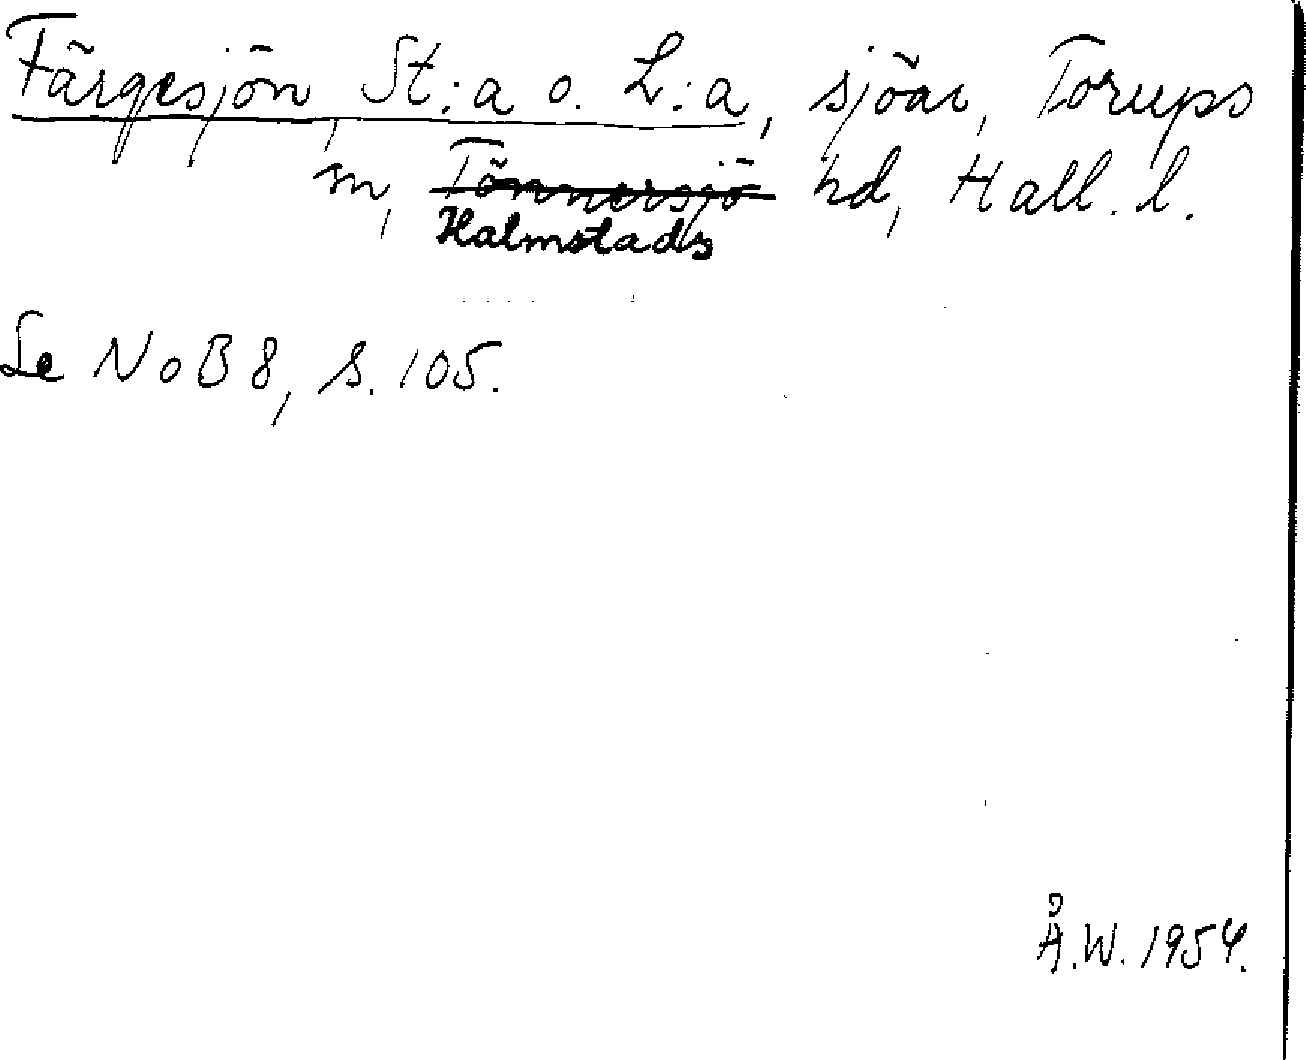 Färgesjön, St:a o. L:a, sjöar, Torups
sn, Tönnersjö hd, Hall. l.
Halmstads
Se NoB 8, s. 105.
Å.W. 1954.